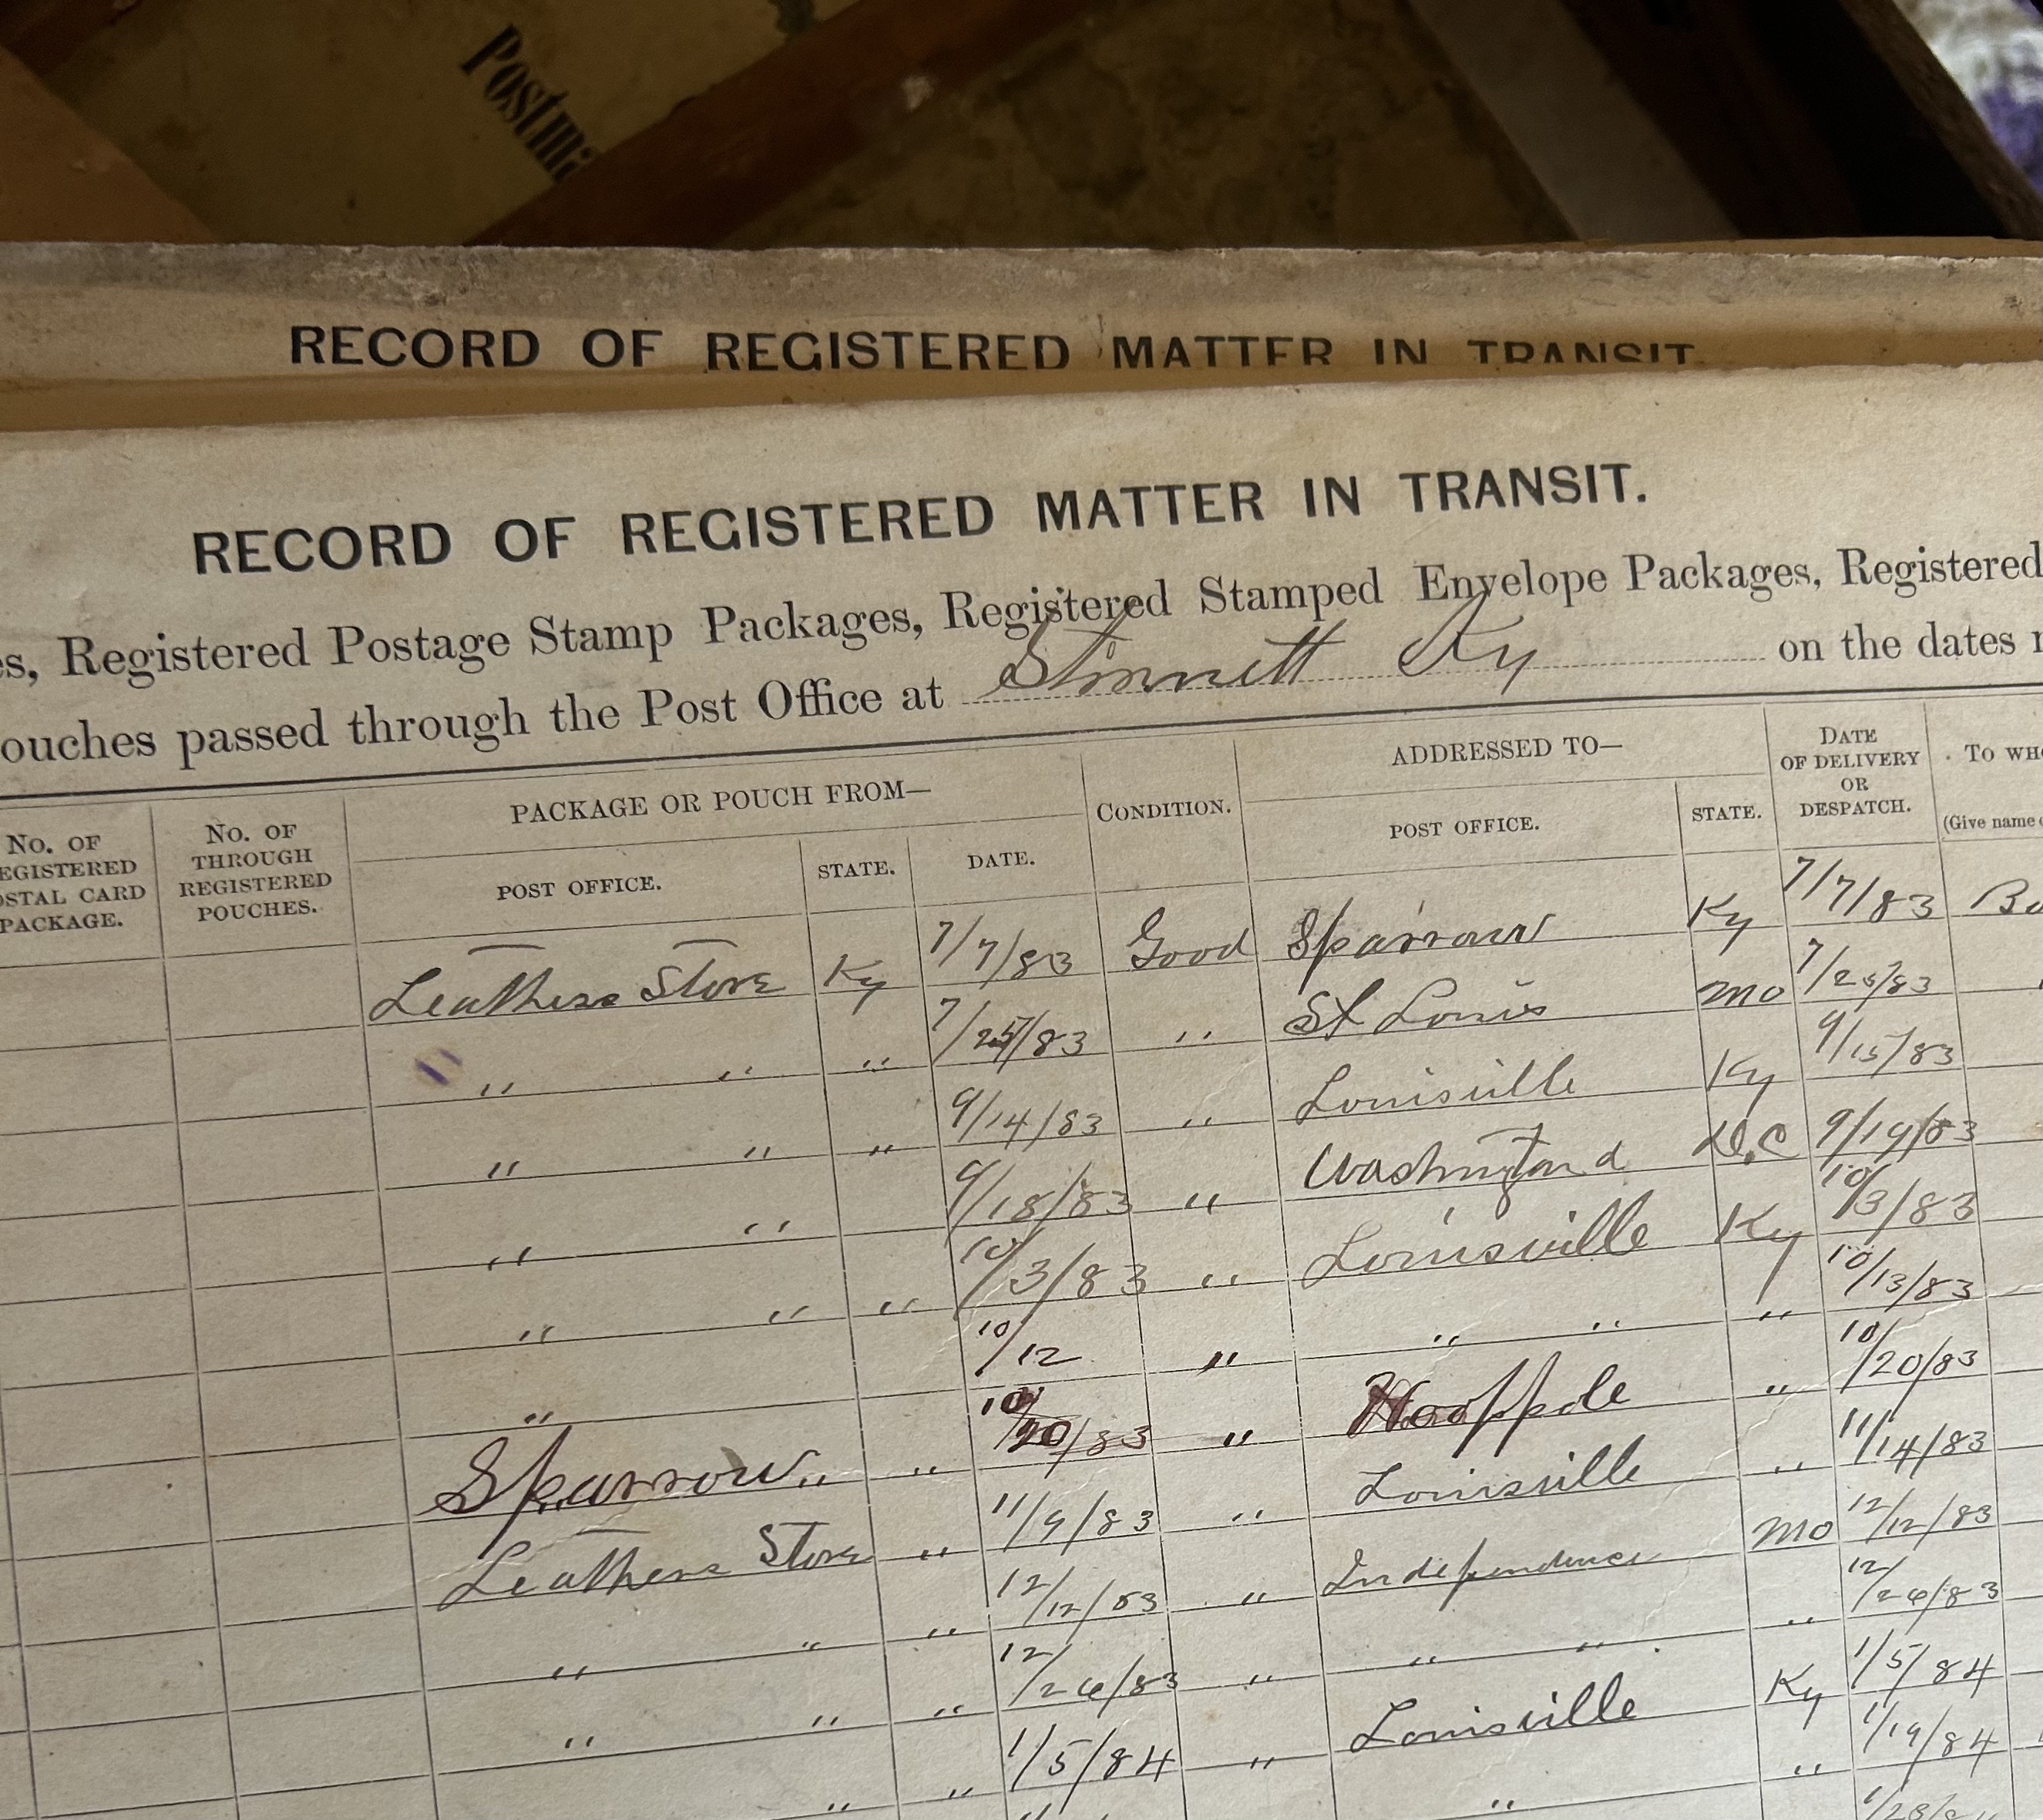 Postma
RECORD OF REGISTERED MATTER IN TRANSIT
RECORD OF REGISTERED MATTER IN TRANSIT.
es, Registered Postage Stamp Packages, Registered Stamped Envelope Packages, Registered
ouches passed through the Post Office at Stinnett Ky on the dates
No. OF EGISTERED OSTAL CARD PACKAGE.
No. OF THROUGH REGISTERED POUCHES.
PACKAGE OR POUCH FROM—
POST OFFICE.
STATE.
DATE.
CONDITION.
ADDRESSED TO—
POST OFFICE.
STATE.
DATE OF DELIVERY OR DESPATCH.
TO WHO
(Give name
Leathers Store Ky 7/7/83 Good Sparrow Ky 7/7/83
" " " 7/25/83 " St Louis Mo 7/25/83
" " " 9/14/83 " Louisville Ky 9/15/83
" " 9/18/83 " Washington D.C 9/19/83
" " " 10/3/83 " Louisville Ky 10/3/83
" 10/12 " " " " 10/13/83
Sparrow " " 10/20/83 " Hooppole " 10/20/83
Leathers Store " 11/9/83 " Louisville " 11/14/83
" " " 12/12/83 " Independence Mo 12/12/83
" " " 12/26/83 " " " " 12/26/83
" " 1/5/84 " Louisville Ky 1/5/84
" " 1/19/84